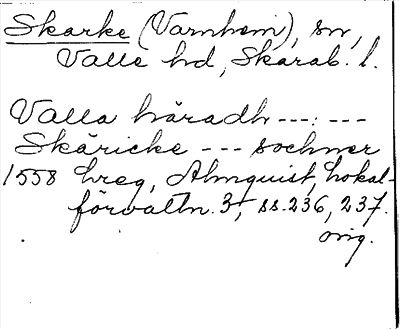 Skarke (Varnhem), sn,
Valle hd, Skarab. l.
Valla häradh ---:---
Skäricke --- sochner
1558 hreg, Almquist, Lokal-
förvaltn. 3, ss. 236, 237.
orig.